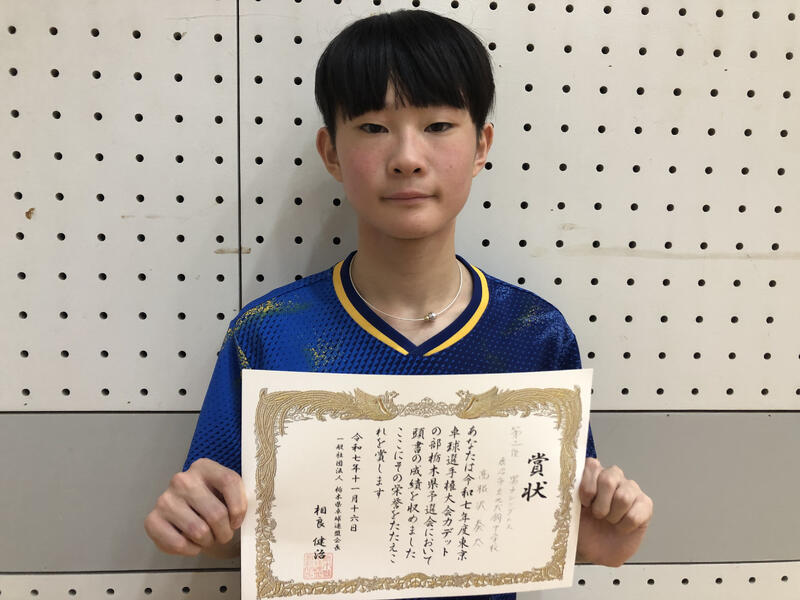 賞状
男子シングルス
あなたは令和七年度東京
卓球選手権大会カデット
の部栃木県予選会において
頭書の成績を収めました
ここにその栄誉をたたえこ
れを賞します
令和七年十一月十六日
一般社団法人 栃木県卓球連盟会長
相良 健治